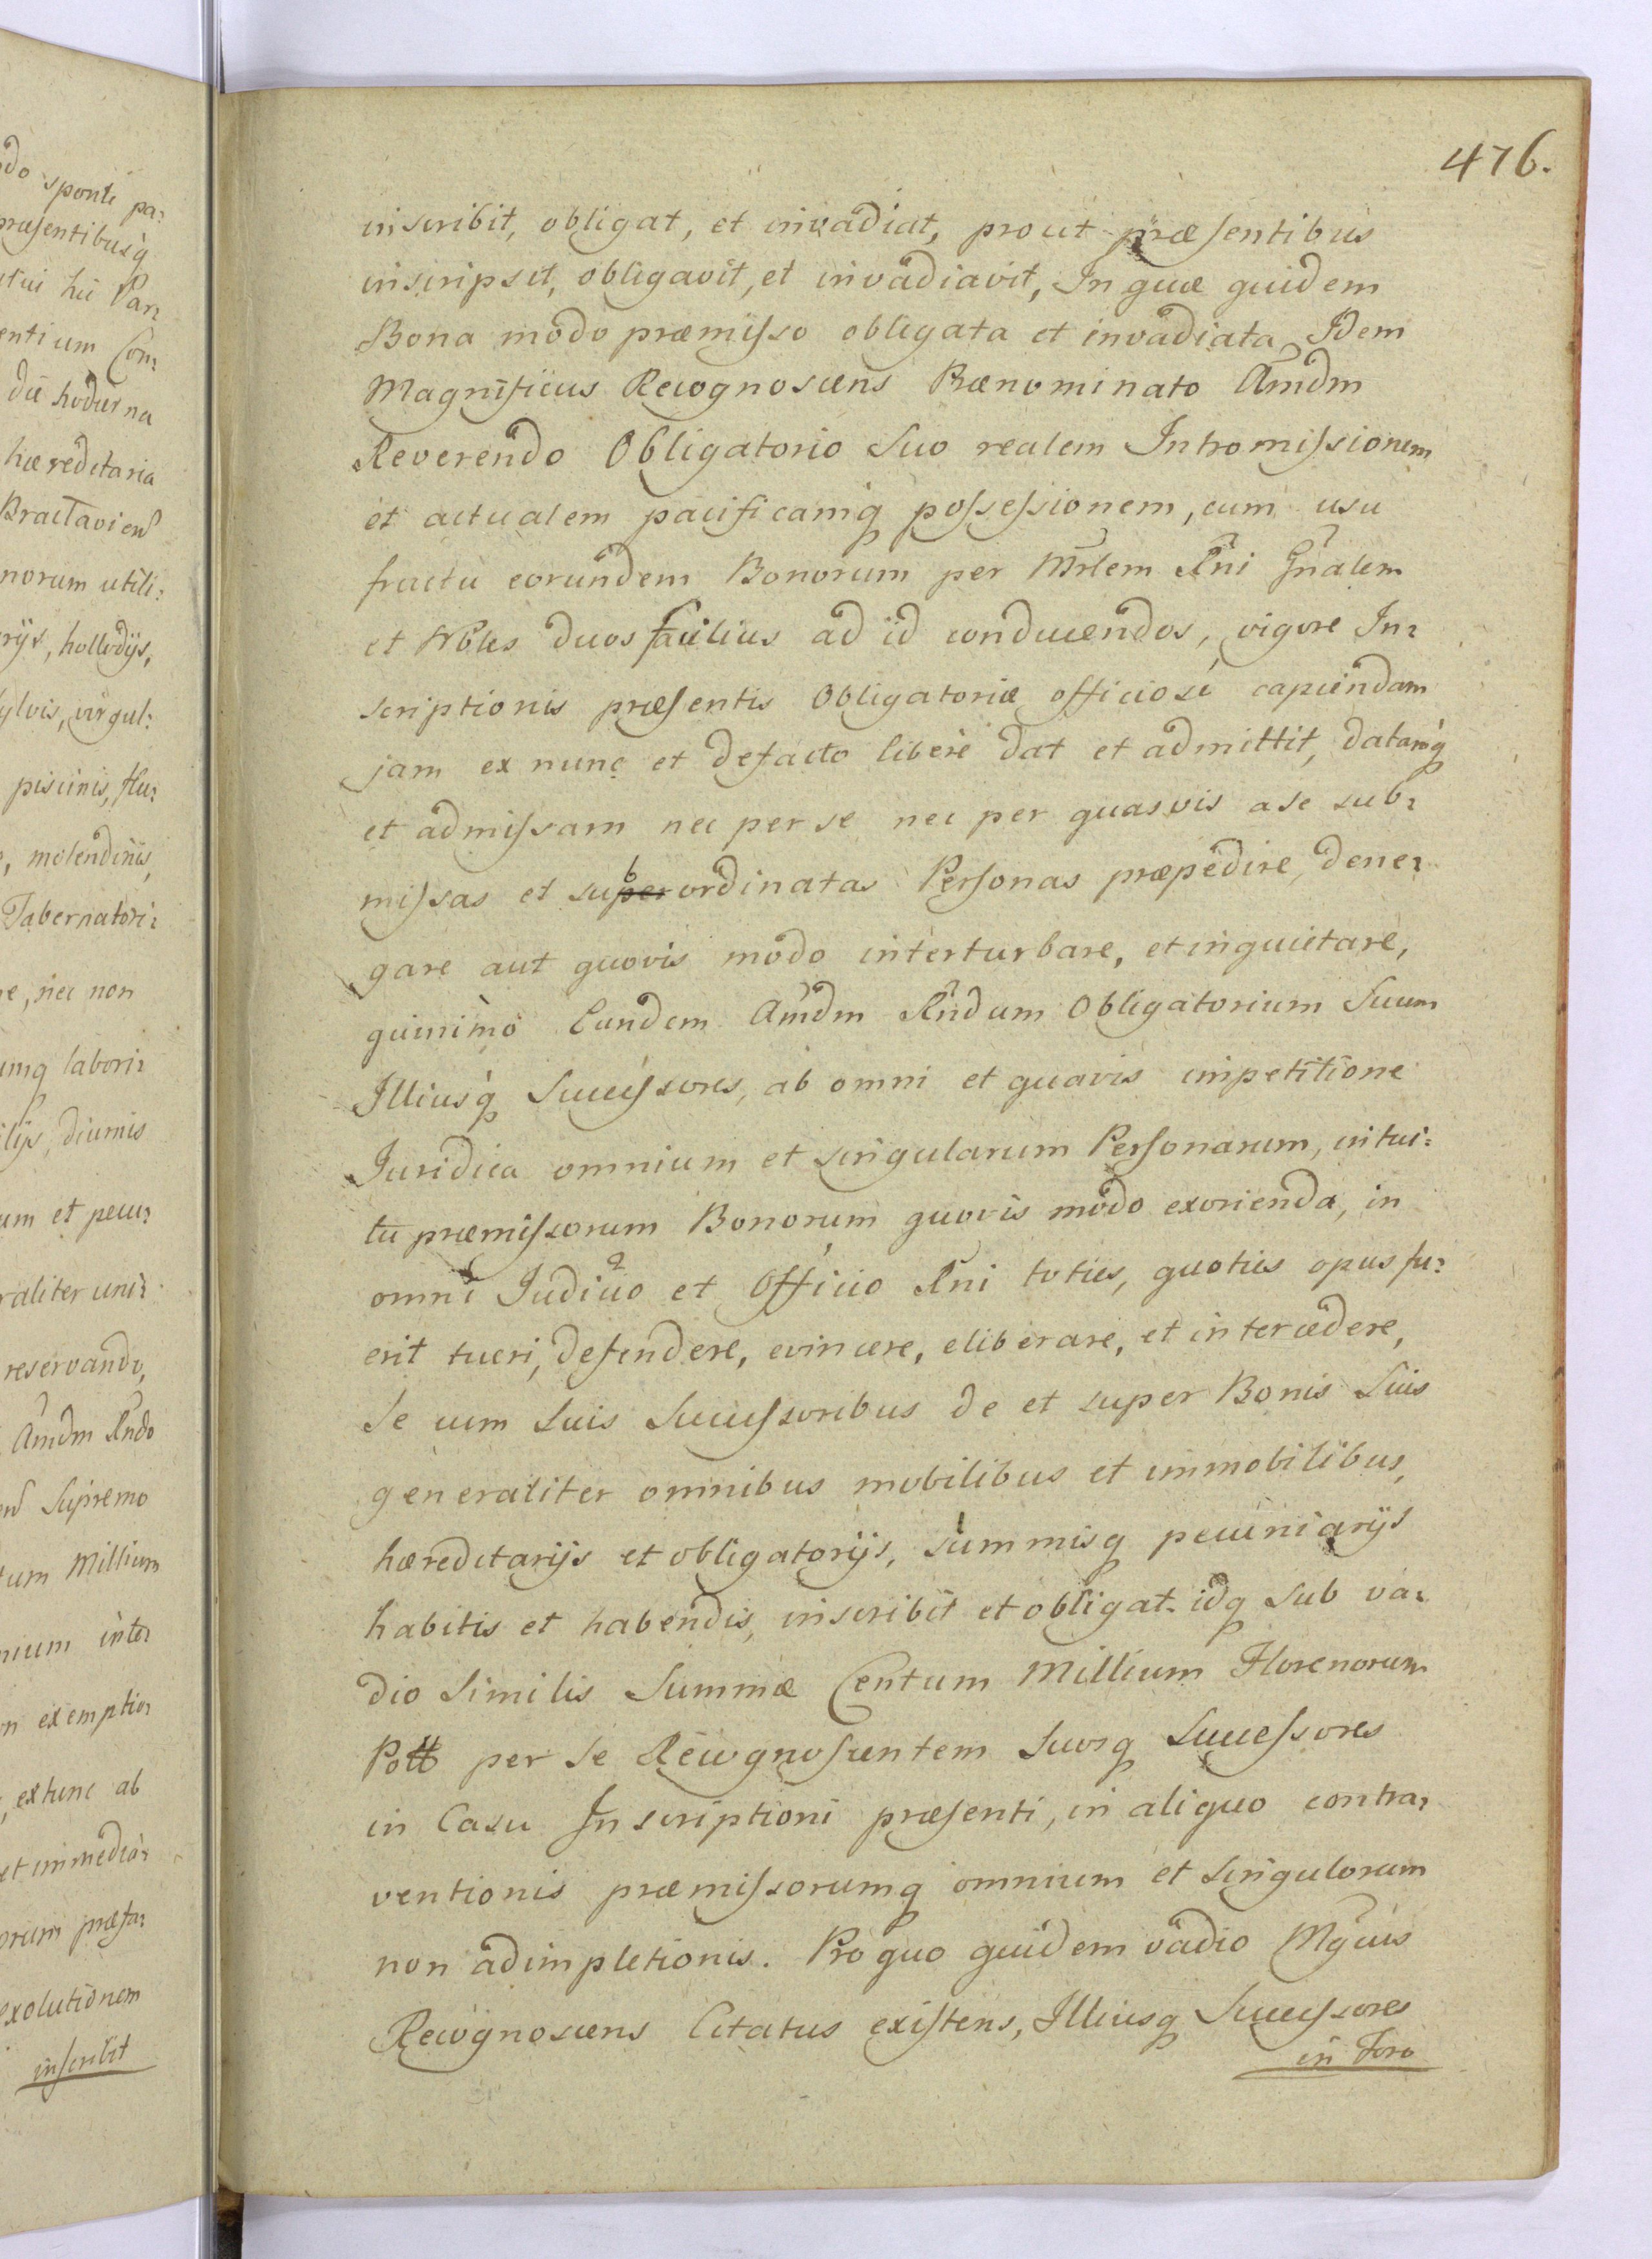 do sponte pa:
præsentibusq
utui hii Par:
entium Con:
die hodierna
hæreditaria
Bractavien
norum utili:
rijs, hollodijs,
ylvis, virgul:
piscinis, flu:
, molendinis,
Tabernatori:
e, nec non
umq labori:
ilijs, diurnis
um et pecu:
raliter uni:
reservando,
Amdm Rndo
Supremo
tum Millium
nium inter
n exemptio:
, extunc ab
et immedia:
orum præfa:
exolutionem
inscribit
476.
inscribit, obligat, et invadiat, prout præsentibus
inscripsit, obligavit, et invadiavit, In quæ quidem
Bona modo præmisso obligata et invadiata Idem
Magnificus Recognoscens Prænominato Amdm
Reverendo Obligatorio Suo realem Intromissionem
et actualem pacificamq possessionem, cum usu
fructu eorundem Bonorum per Mrlem Rni Gnalem
et Nbles duos facilius ad id conducendos, vigore In:
scriptionis præsentis Obligatoriæ officiose capiendam
jam ex nunc et defacto libere dat et admittit, datamq
et admissam nec per se nec per quasvis a se sub:
missas et subordinatas Personas præpedire, dene:
gare aut quovis modo interturbare, et inquietare,
quinimo Eundem Amdm Rndum Obligatorium Suum
Illiusq Successores, ab omni et quavis impetitione
Juridica omnium et singularum Personarum, intui:
tu præmissorum Bonorum quovis modo exorienda, in
omni Judicio et Officio Rni toties, quoties opus fu:
erit tueri, defendere, evincere, eliberare, et intercedere,
Se cum Suis Successoribus de et super Bonis Suis
generaliter omnibus mobilibus et immobilibus,
hæreditarijs et obligatorijs, summisq pecuniarijs
habitis et habendis, inscribit et obligat. idq Sub va:
dio Similis Summæ Centum Millium Florenorum
Poll per Se Recognoscentem Suosq Successores
in Casu Inscriptioni præsenti, in aliquo contra:
ventionis præmissorumq omnium et Singulorum
non adimpletionis. Pro quo quidem vadio Mgcus
Recognoscens Citatus existens, Illiusq Successores
in Foro